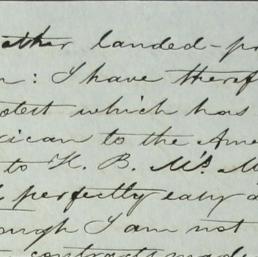 ather landed-pr
n: I have theref
otest which has
xican to the Ame
to H. B. Ms. M
perfectly easy a
ough I am not
contracts made